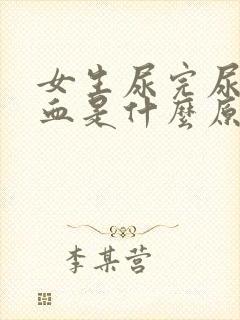 女生尿完尿
血是什麼原
李某营